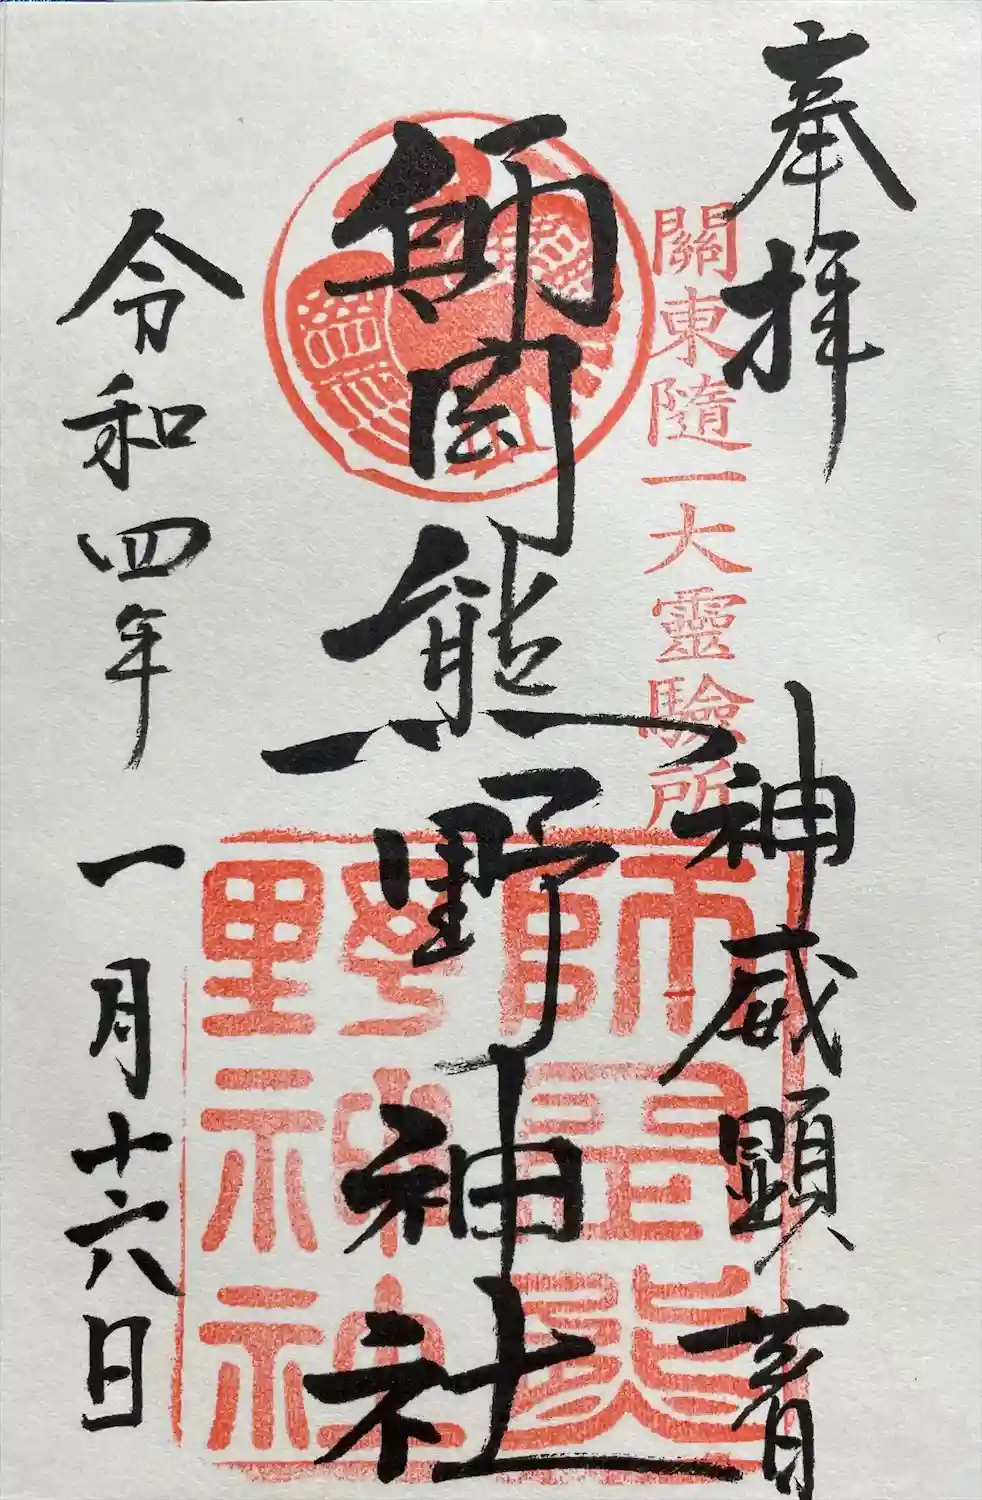 奉拝
關東随一大靈驗所
神威顕著
師岡熊野神社
師岡熊
野神社
令和四年
一月十六日